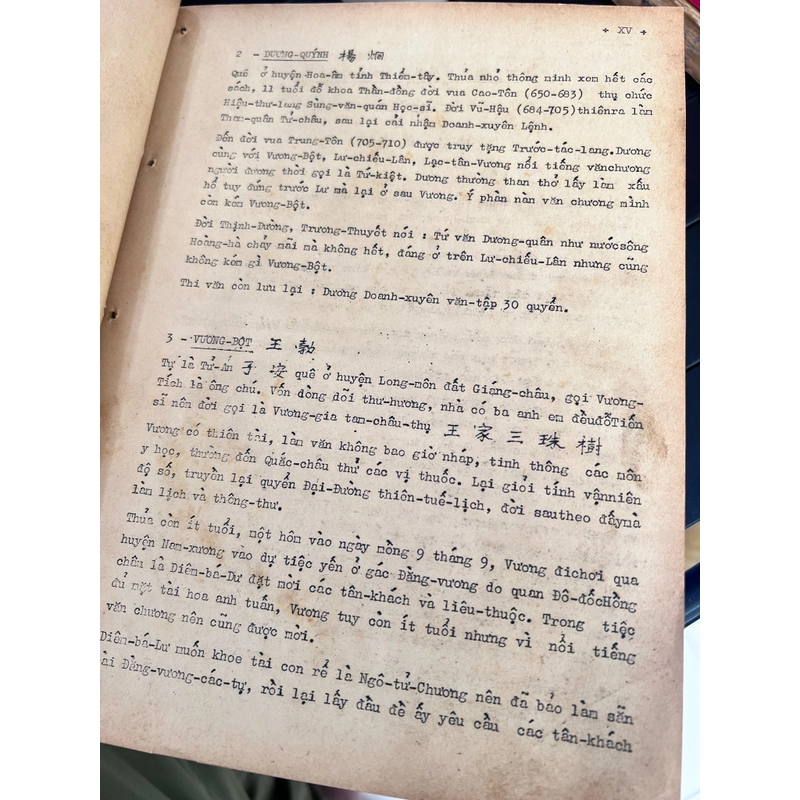 + XV +
2 - DƯƠNG-QUÝNH 楊 炯
Quê ở huyện Hoa-âm tỉnh Thiểm-tây. Thủa nhỏ thông minh xem hết các
sách, 11 tuổi đỗ khoa Thần-đồng đời vua Cao-Tôn (650-683) thụ chức
Hiệu-thư-lang Sùng-văn-quán Học-sĩ. Đời Vũ-Hậu (684-705)thiênra làm
Tham-quân Tử-châu, sau lại cải nhậm Doanh-xuyên Lệnh.
Đến đời vua Trung-Tôn (705-710) được truy tặng Trước-tác-lang.Dương
cùng với Vương-Bột, Lư-chiếu-Lân, Lạc-tân-Vương nổi tiếng vănchương
người đương thời gọi là Tứ-kiệt. Dương thường than thở lấy làm xấu
hổ tuy đứng trước Lư mà lại ở sau Vương. Ý phàn nàn văn chương mình
còn kém Vương-Bột.
Đời Thịnh-Đường, Trương-Thuyết nói : Tứ văn Dương-quân như nướcsông
Hoàng-hà chảy mãi mà không hết, đáng ở trên Lư-chiếu-Lân nhưng cũng
không kém gì Vương-Bột.
Thi văn còn lưu lại : Dương Doanh-xuyên văn-tập 30 quyển.
3 - VƯƠNG-BỘT 王 勃
Tự là Tử-An 子 安 quê ở huyện Long-môn đất Giáng-châu, gọi Vương-
Tích là ông chú. Vốn dòng dõi thư-hương, nhà có ba anh em đềuđỗTiến
sĩ nên đời gọi là Vương-gia tam-châu-thụ 王 家 三 珠 樹
Vương có thiên tài, làm văn không bao giờ nháp, tinh thông các môn
y học, thường đến Quắc-châu thử các vị thuốc. Lại giỏi tính vậnniên
độ số, truyền lại quyển Đại-Đường thiên-tuế-lịch, đời sautheo đấymà
làm lịch và thông-thư.
Thủa còn ít tuổi, một hôm vào ngày mồng 9 tháng 9, Vương đichơi qua
huyện Nam-xương vào dự tiệc yến ở gác Đằng-vương do quan Đô-đốcHồng
châu là Diêm-bá-Dư đặt mời các tân-khách và liêu-thuộc. Trong tiệc
đủ mặt tài hoa anh tuấn, Vương tuy còn ít tuổi nhưng vì nổi tiếng
văn chương nên cũng được mời.
Diêm-bá-Lư muốn khoe tài con rể là Ngô-tử-Chương nên đã bảo làm sẵn
ài Đằng-vương-các-tự, rồi lại lấy đầu đề ấy yêu cầu các tân-khách